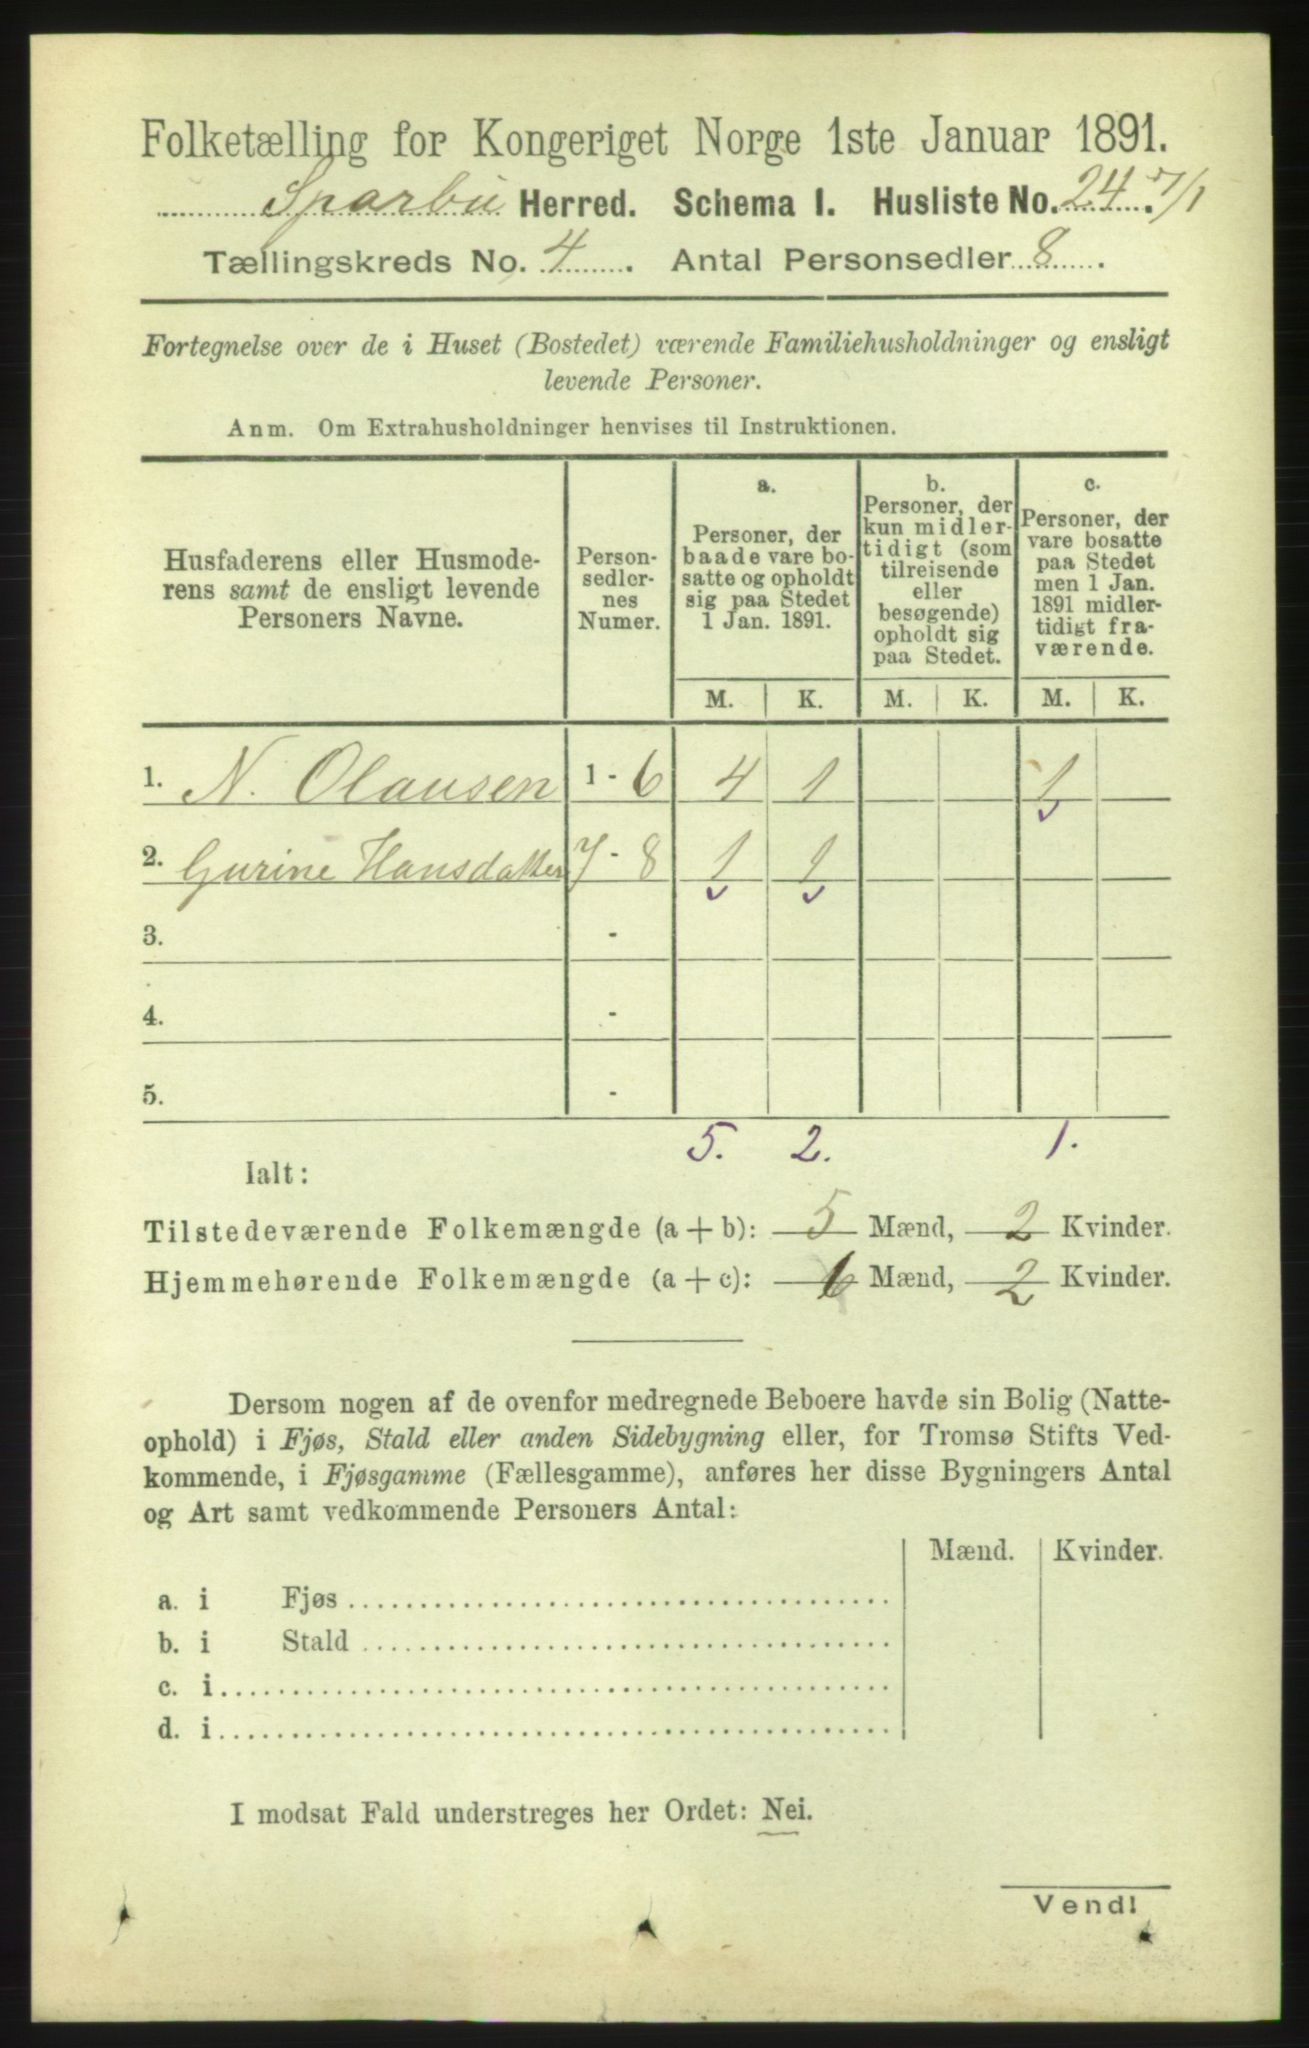 Folketælling for Kongeriget Norge 1ste Januar 1891.
Sparbu Herred. Schema I. Husliste No. 24.
Tællingskreds No. 4. Antal Personsedler 8.
Fortegnelse over de i Huset (Bostedet) værende Familiehusholdninger og ensligt
levende Personer.
Anm. Om Extrahusholdninger henvises til Instruktionen.
Husfaderens eller Husmode-
rens samt de ensligt levende
Personers Navne.
Person-
sedler-
nes
Numer.
a.
Personer, der
baade vare bo-
satte og opholdt
sig paa Stedet
1 Jan. 1891.
b.
Personer, der
kun midler-
tidigt (som
tilreisende
eller
besøgende)
opholdt sig
paa Stedet.
c.
Personer, der
vare bosatte
paa Stedet
men 1 Jan.
1891 midler-
tidigt fra-
værende.
M. K. M. K. M. K.
1. N. Olausen 1 - 6 4 1 1
2. Gurine Hansdatter 7 - 8 1 1
3. -
4. -
5. -
5. 2. 1.
Ialt:
Tilstedeværende Folkemængde (a + b): 5 Mænd, 2 Kvinder.
Hjemmehørende Folkemængde (a + c): 6 Mænd, 2 Kvinder.
Dersom nogen af de ovenfor medregnede Beboere havde sin Bolig (Natte-
ophold) i Fjøs, Stald eller anden Sidebygning eller, for Tromsø Stifts Ved-
kommende, i Fjøsgamme (Fællesgamme), anføres her disse Bygningers Antal
og Art samt vedkommende Personers Antal:
Mænd. Kvinder.
a. i Fjøs
b. i Stald
c. i
d. i
I modsat Fald understreges her Ordet: Nei.
Vend!